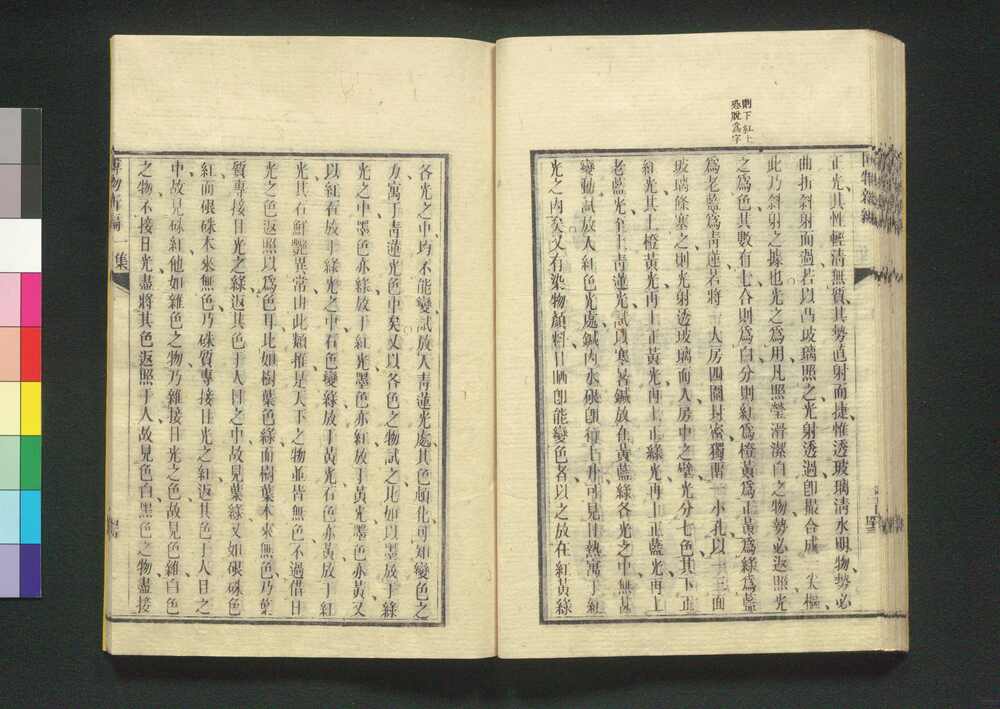 則下紅上
恐脫為字
正光其性輕清無質其勢直射而捷惟透玻璃清水明物勢必
曲折斜射而過若以凸玻璃照之光射透過卽嘬合成一尖樞
此乃斜射之據也光之為用凡照瑩滑潔白之物勢必返照光
之為色其數有七合則為白分則紅為橙黃為正黃為綠為藍
為老藍為靑蓮若將一人房四圍封密獨開一小孔以一三面
玻璃條塞之則光射透玻璃而入房中之壁光分七色其下正
紅光其上橙黃光再上正黃光再上正綠光再上正藍光再上
老藍光至上靑蓮光試以寒暑鍼放在黃藍綠各光之中無甚
變動試放入紅色光處鍼內水硍卽行上升可見日熱寓于紅
光之內矣又有染物顏料日晒卽能變色者以之放在紅黃綠
各光之中均不能變試放入靑蓮光處其色頓化可知變色之
力寓于靑蓮光色中矣又以各色之物試之比如以墨放于綠
光之中墨色亦綠放于紅光墨色亦紅放于黃光墨色亦黃又
以紅石放于綠光之中石色變綠放于黃光石色亦黃放于紅
光其石鮮艷異常由此類推是天下之物並皆無色不過借日
光之色返照以為色耳比如樹葉色綠而樹葉本來無色乃葉
質專接日光之綠返其色于人目之中故見葉綠又如硍硃色
紅而硍硃本來無色乃硃質專接日光之紅返其色于人目之
中故見硃紅他如雜色之物乃雜接日光之色故見色雜白色
之物不接日光盡將其色返照于人故見色白黑色之物盡接
博物新編一集